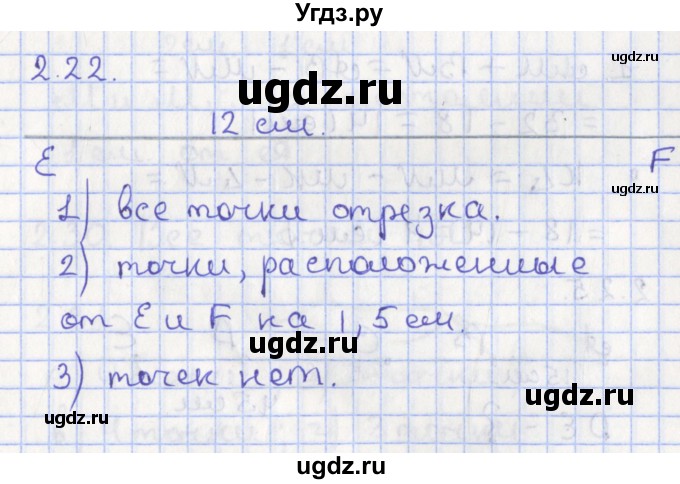 Угдз.ру
2.22.
ugdz.ru
ugdz.ru
12 см.
E F
ugdz.ru
1) все точки отрезка.
ugdz.ru
2) точки, расположенные
от E и F на 1,5 см.
ugdz.ru
3) точек нет.
ugdz.ru
ugdz.ru
ugdz.ru
ugdz.ru